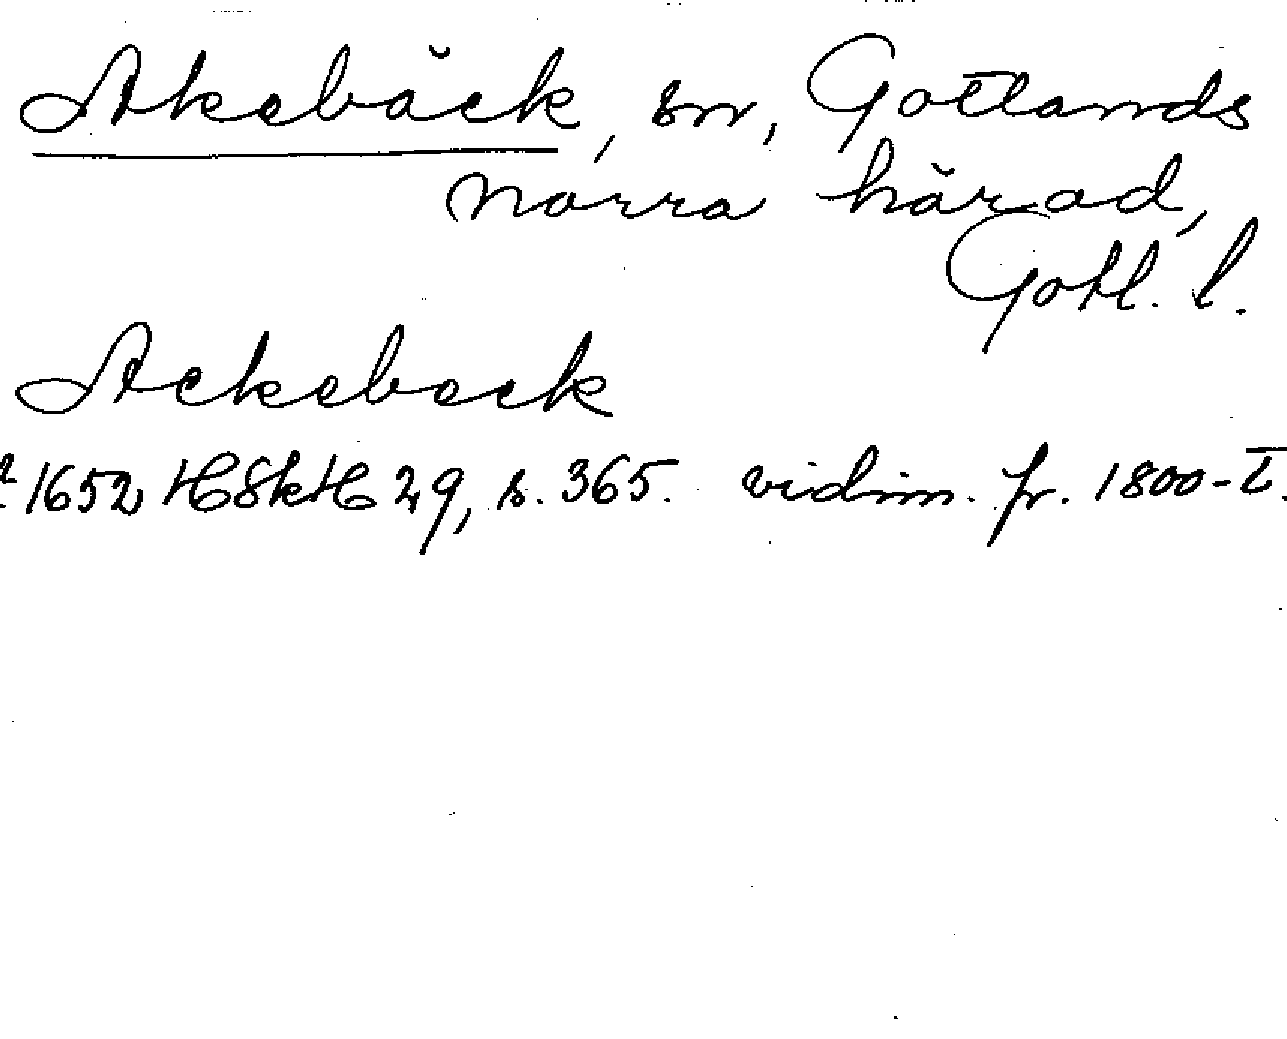 Akebäck, sn, Gotlands
norra härad,
Gotl. l.
Ackebeck
1652 HSkH 29, s. 365. vidim. fr. 1800-t.